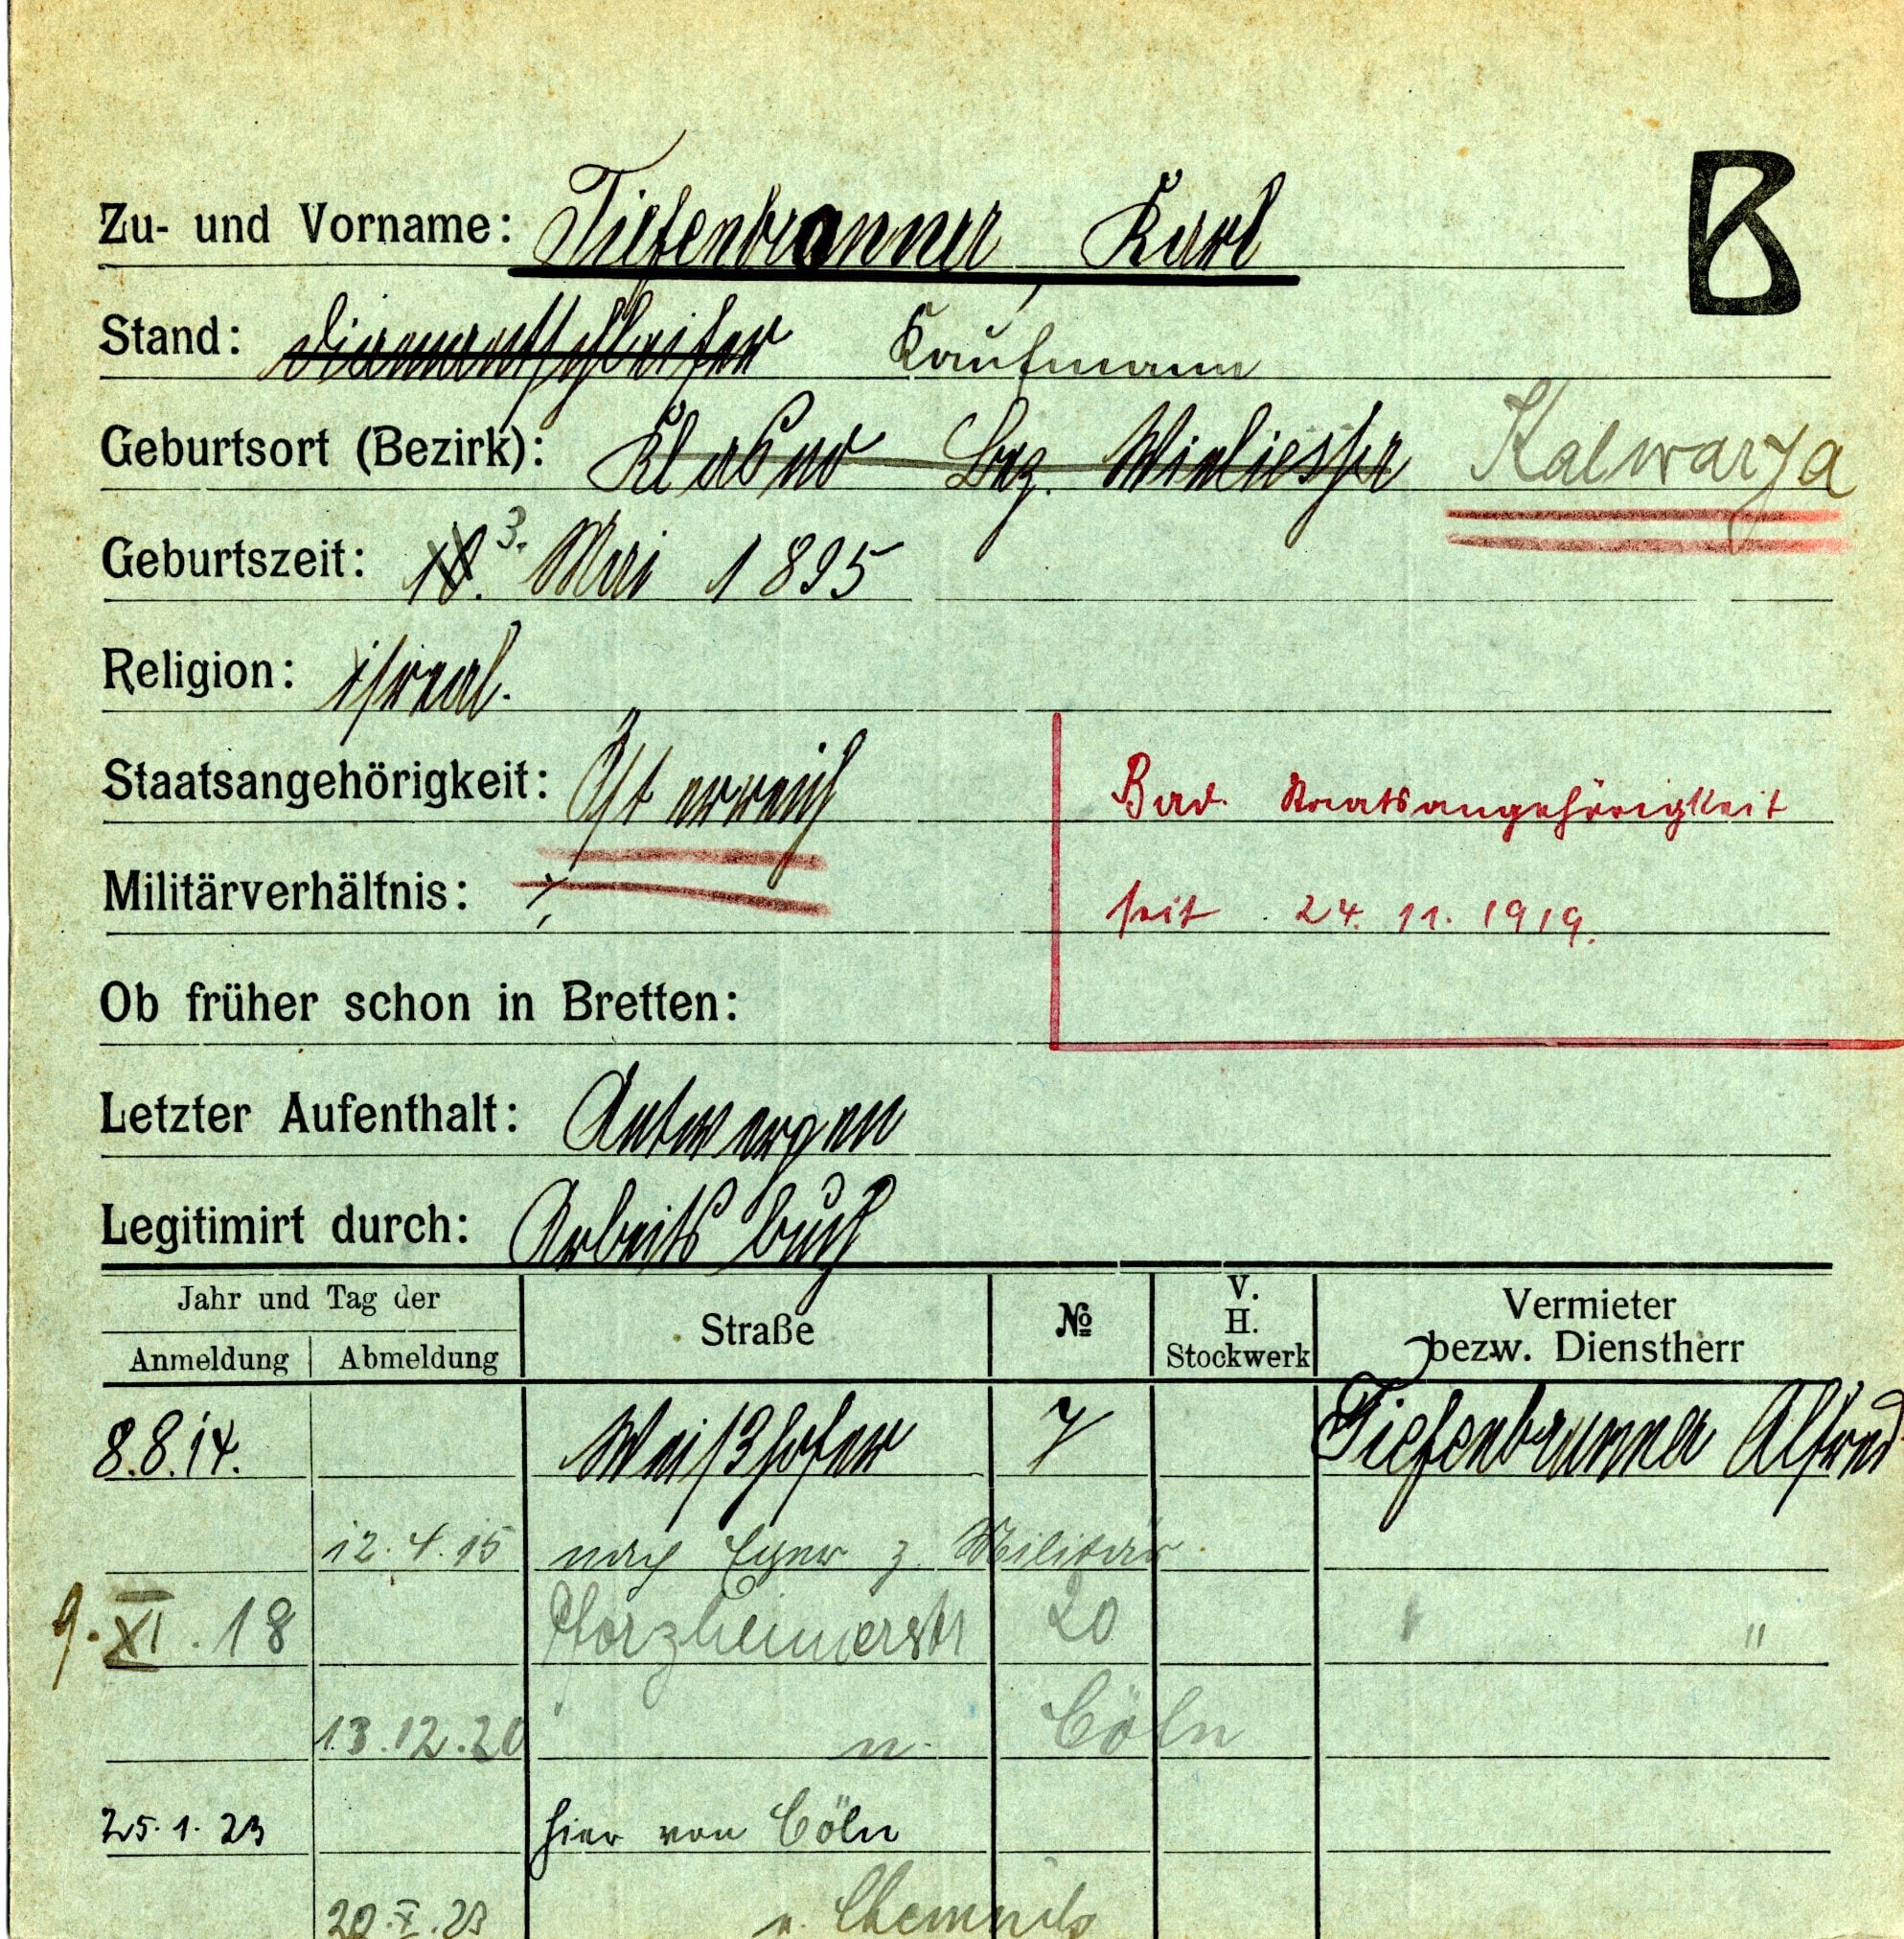 B
Zu- und Vorname: Tiefenbronner, Karl
Stand: Diamantschleifer Kaufmann
Geburtsort (Bezirk): Klasno Bez. Kalwarya
Geburtszeit: 18. 3. Mai 1895
Religion: israel.
Staatsangehörigkeit: Österreich
Bad. Staatsangehörigkeit
Militärverhältnis:
seit 24. 11. 1919.
Ob früher schon in Bretten:
Letzter Aufenthalt: Antwerpen
Legitimirt durch: Arbeitsbuch
Jahr und Tag der
Anmeldung Abmeldung Straße № V. H. Stockwerk Vermieter bezw. Dienstherr
8.8.14. Weißhofer 7 Tiefenbrunner Alfred
12.4.15 nach Eger z. Militär
9. XI. 18 Pforzheimerstr 20 " "
13.12.20 n. Cöln
25.1.23 hier von Cöln
20.X.23 n. Chemnitz